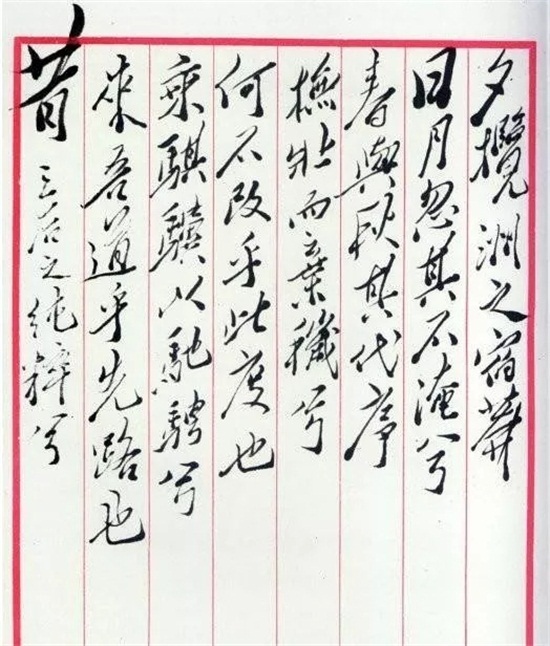 夕攬洲之宿莽
日月忽其不淹兮
春與秋其代序
撫壯而棄穢兮
何不改乎此度也
乘騏驥以馳騁兮
來吾道乎先路也
昔三后之純粹兮